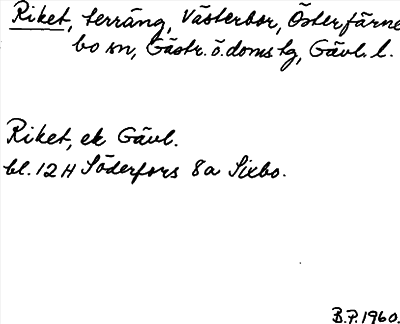 Riket, terräng, Västerbor, Österfärne
bo sn, Gästr. ö. doms lg, Gävl. l.
Riket, ek Gävl.
bl. 12 H Söderfors 8a Sixbo.
B.P. 1960.